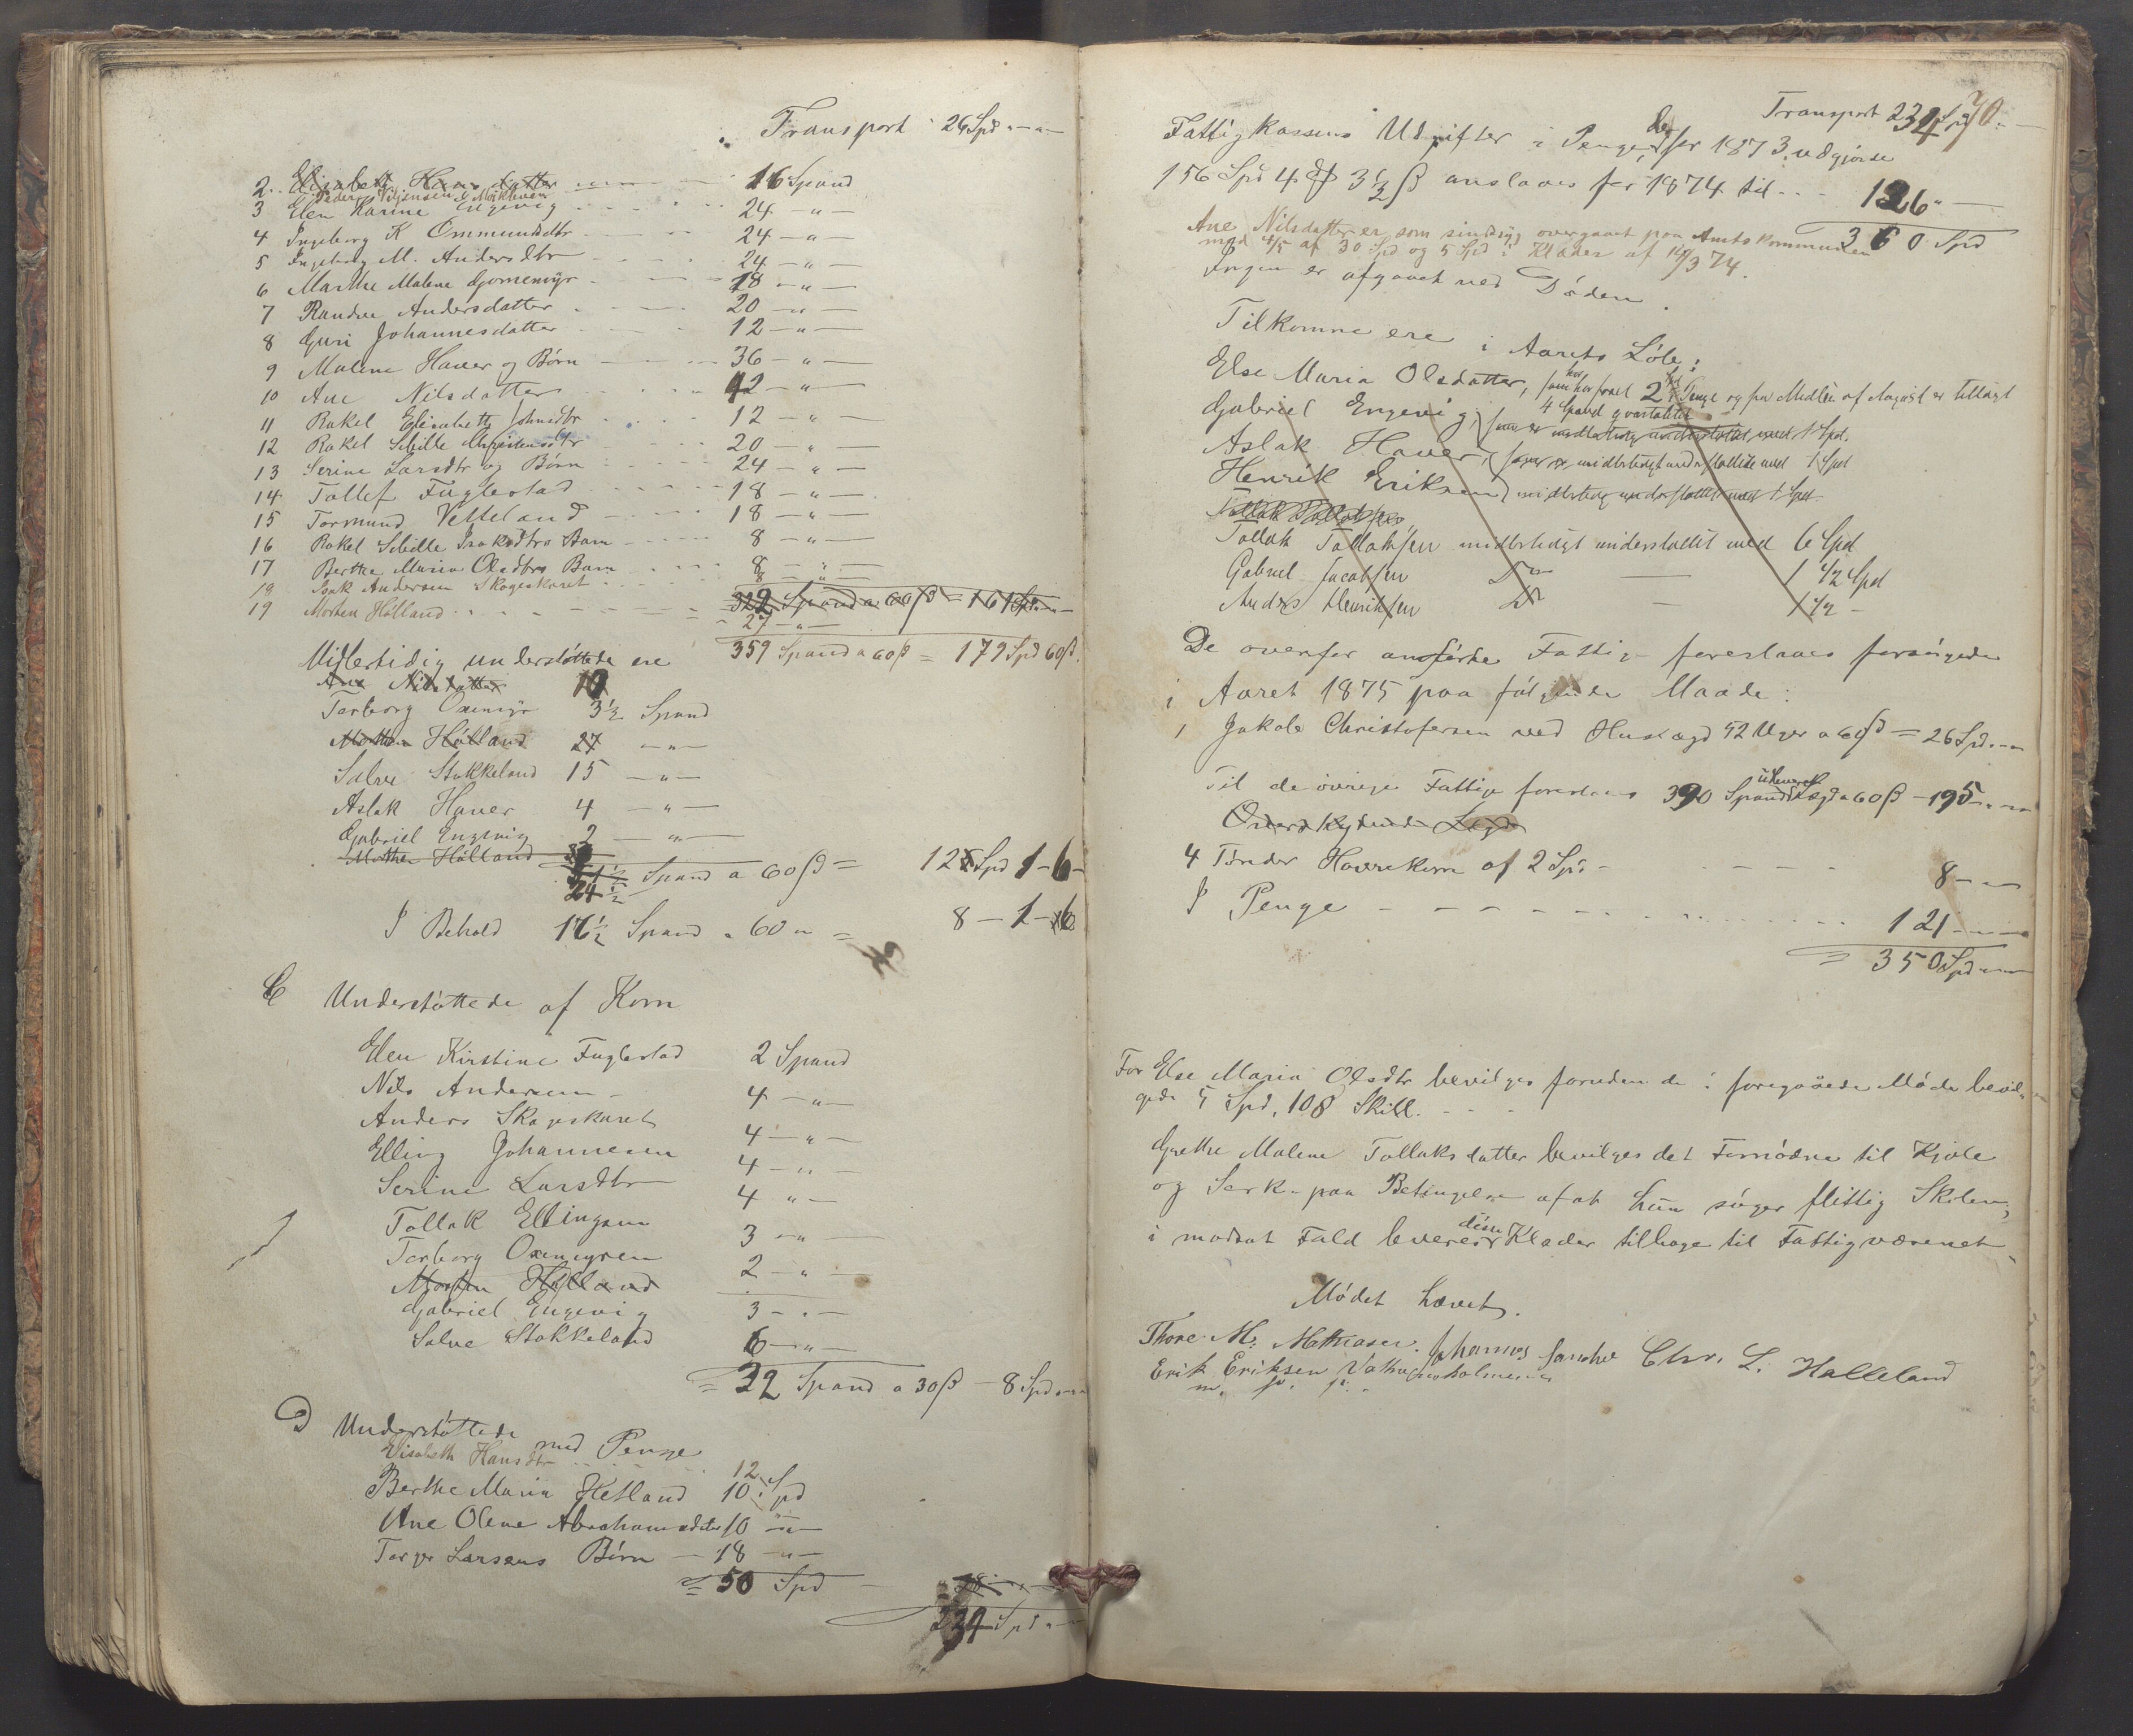 Transport 26 Spd " — " —
2. Elisabeth Hansdatter 16 Spand
Peder Mökleven
3 Elen Karine Engevig 24 — " —
4 Ingeborg K Ommundsdtr 24 — " —
5 Ingeborg M. Andersdtr 24 — " —
6 Marthe Malene 18 — " —
7 Randu Andersdatter 20 — " —
8 Guri Johannesdatter 12 — " —
9 Malene Haver og Börn 36 — " —
10 Ane Nilsdatter 12 — " —
11 Rakel Elisabeth Johnsdtr 12 — " —
12 Rakel Sibille Christensdtr 20 — " —
13 Serine Larsdtr og Börn 24 — " —
14 Tollef Fuglestad 18 — " —
15 Tormund Vetteland 18 — " —
16 Rakel Sibille Isaksdtrs Barn 8 — " —
17 Berthe Maria Olsdtrs Barn 8 — " —
18 Isak Andersen Skogeskaret 8 — " —
19 Morten Hölland 322 Spand a 60 ß = 161 Spd
27 — " —
359 Spand a 60 ß = 179 Spd 60 ß.
Midlertidig understöttede ere
Ane Nilsdatter 10
Torborg Oxemyr 3½ Spand
Morten Hölland 27 — " —
Salve Stokkeland 15 — " —
Aslak Haver 4 — " —
Gabriel Engevig 2 — " —
Morten Hölland
24½ Spand a 60 ß = 12 Spd 1 - 6 -
I Behold 16½ Spand a 60 " = 8 — 1 — 6
C Understöttede af Korn
Elen Kirstine Fuglestad 2 Spand
Nils Andersen 4 — " —
Anders Skogeskaret 4 — " —
Elling Johannesen 4 — " —
Serine Larsdtr 4 " —
Tollak Ellingsen 3 — " —
Torborg Oxemyren 2 — " —
Morten Hölland
Gabriel Engevig 3 — " —
Salve Stokkeland 6 — " —
= 32 Spand a 30 ß — 8 Spd " — "
D Understöttede med Penge
Elisabeth Hansdtr 12
Berthe Maria Hetland 10 Spd
Ane Olene Abrahamsdatter 10 — " —
Torger Larsens Börn — 18 — " —
= 50 Spd
234 Spd " — "
70
Transport 234 Spd " —
Fattigkassens Udgifter i Penge, der for 1873 udgjorde
156 Spd 4 ₰ 3½ ß anslaaes for 1874 til . . . 126 " —
360 Spd
Ane Nilsdatter er som sindssyg overgaaet paa Amtskommunen
med 4/5 af 30 Spd og 5 Spd i Klæder af 19/3 74.
Ingen er afgaaet ved Döden.
Tilkomne ere i Aarets Löb:
Else Maria Olsdatter, som har faaet 2 Spd i Penge og fra Midten af August er tillagt
4 Spand qvartaliter
Gabriel Engevig, som er midlertidig understöttet med 1 Spd.
Aslak Haver, som er midlertidigt understöttet med 1 Spd
Henrik Eriksen midlertidig understöttet med 1 Spd
Tollak Tollaksen
Tollak Tollaksen midlertidigt understöttet med 6 Spd
Gabriel Jacobsen Do — 1 1/2 Spd
Anders Henriksen Do — 1 1/2 —
De ovenfor anförte Fattige foreslaaes forsörgede
i Aaret 1875 paa fölgende Maade:
1 Jakob Christofersen ved Huslægd 52 Uger a 60 ß = 26 Spd " — "
Til de övrige Fattige foreslaaes 390 Spand udenværk Lægd a 60 ß — 195 " — "
Overskydende Lægd
4 Tönder Havrekorn af 2 Spd — 8 — " —
I Penge 121 — " —
= 350 Spd " — "
For Else Maria Olsdtr bevilges foruden de i foregaaende Möde bevil-
gede 5 Spd, 108 Skill.
Grethe Malene Tollaksdatter bevilges det Fornödne til Kjole
og Særk paa Betingelse af at hun söger flittig Skolen;
i modsat Fald leveres disse Klæder tilbage til Fattigvæsenet.
Mödet hævet.
Thore M. Mathiasen. Johannes Chr. L. Halleland
Erik Eriksen
m. p. p.